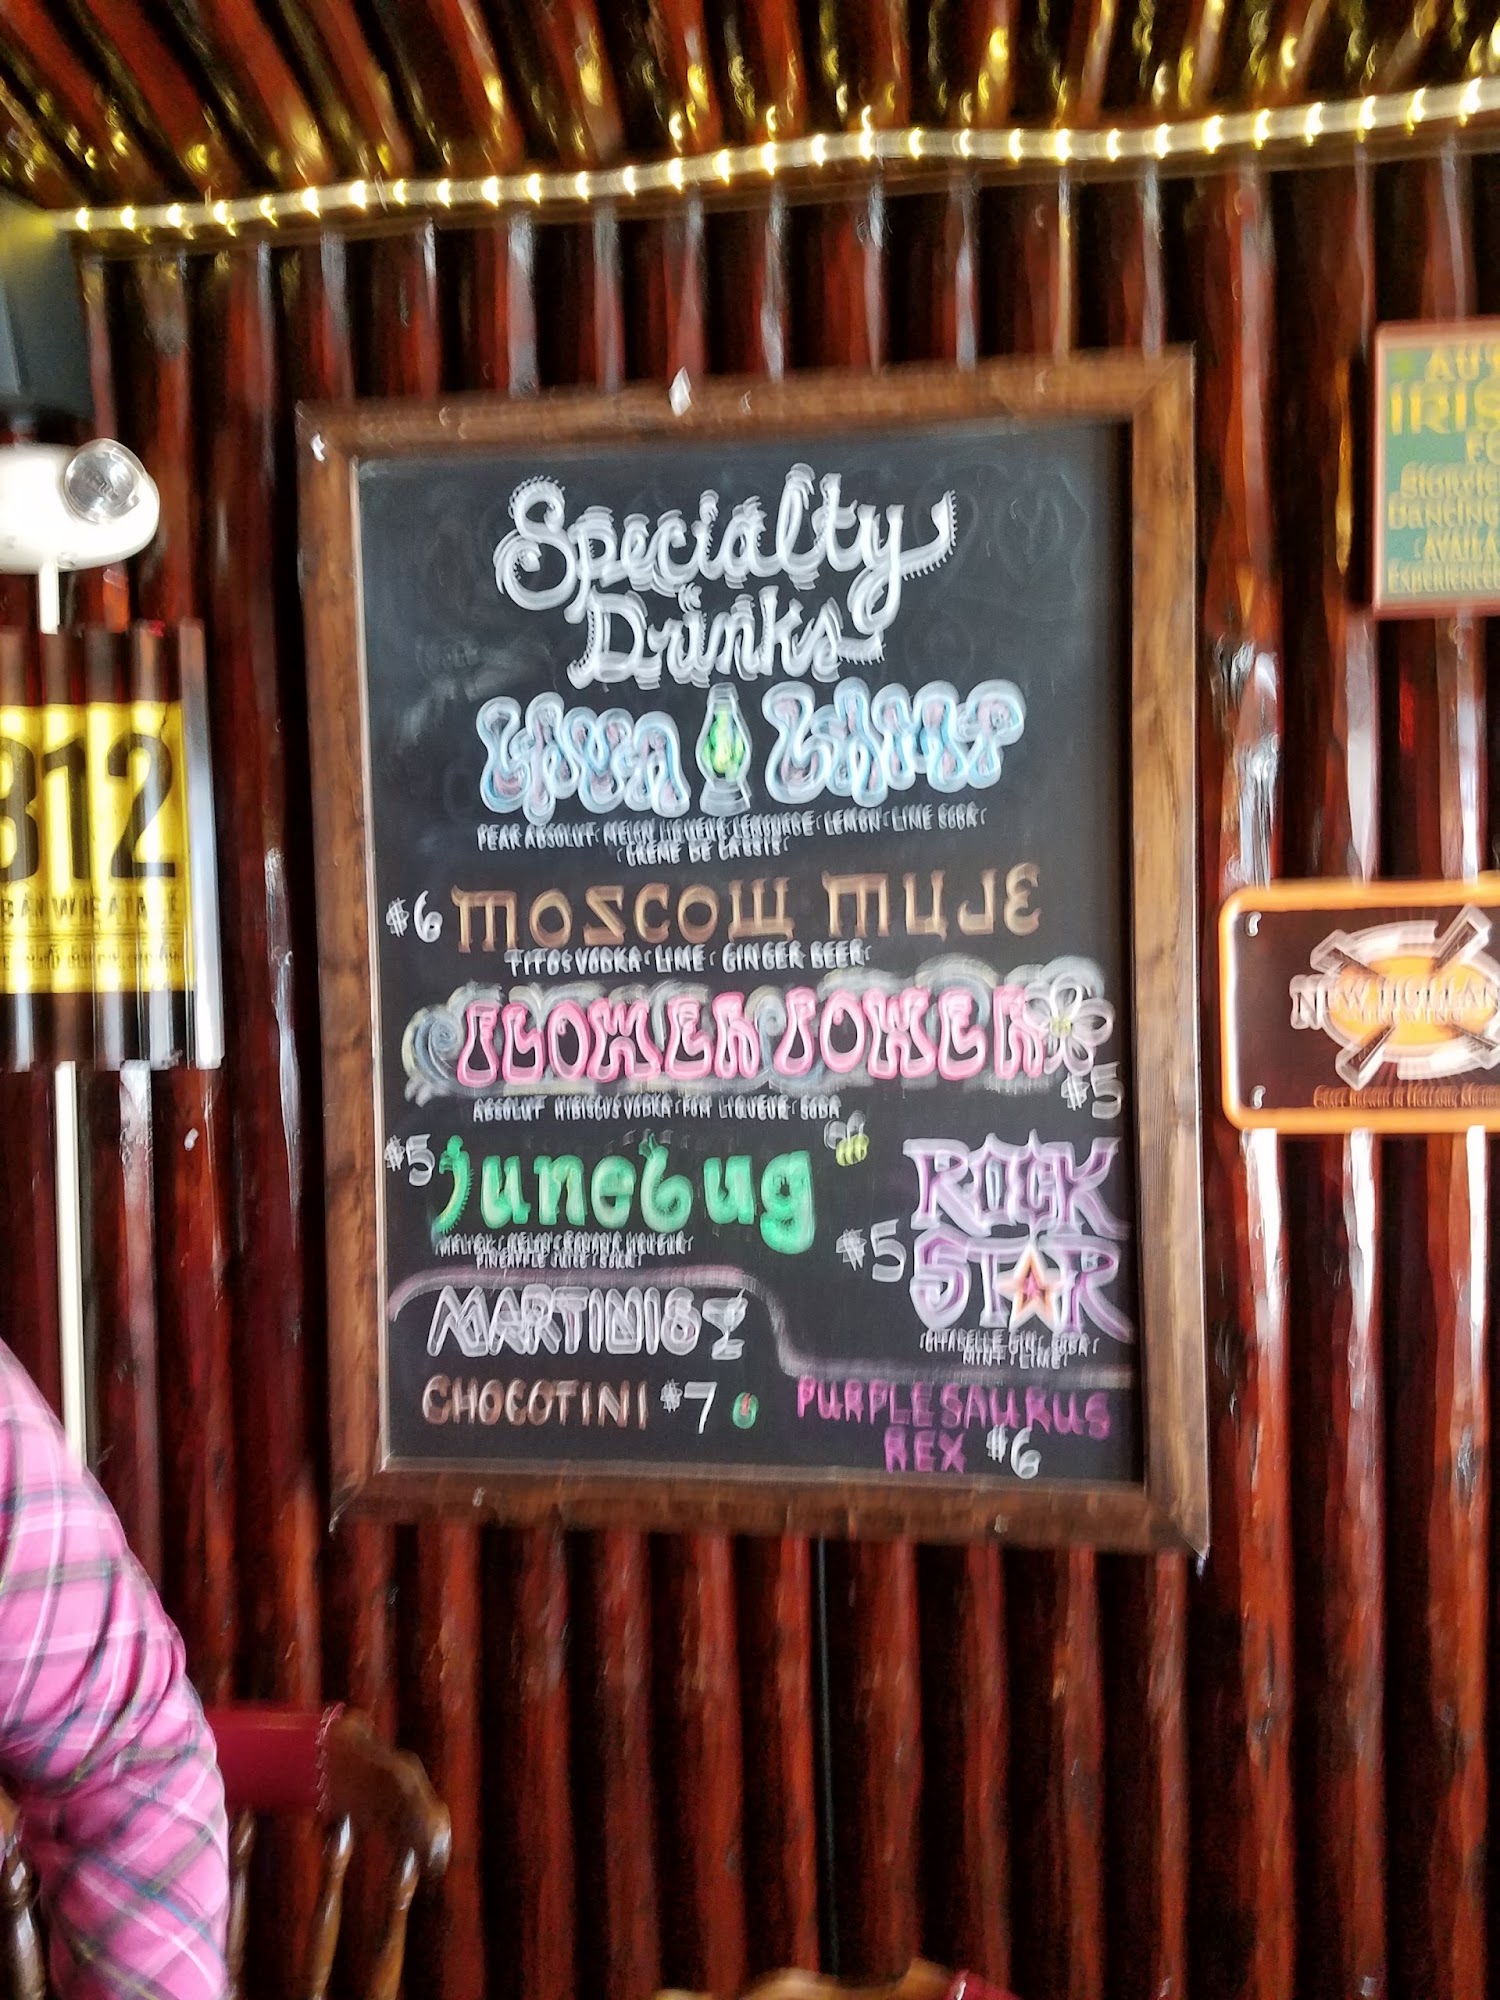 Specialty
Drinks
LAVA LAMP
PEAR ABSOLUT · MELON LIQUEUR · LEMONADE · LEMON · LIME SODA ·
· CRÈME DE CASSIS ·
$6 MOSCOW MULE
TITOS VODKA · LIME · GINGER BEER ·
FLOWER POWER
$5
ABSOLUT HIBISCUS VODKA · POM LIQUEUR · SODA
$5 junebug
· MELON · BANANA LIQUEUR ·
PINEAPPLE JUICE · SOUR ·
$5 ROCK
STAR
· CITADELLE GIN · SODA ·
MINT · LIME ·
MARTINIS
CHOCOTINI $7
PURPLESAURUS
REX $6
312
URBAN WHEAT ALE
IRIS
Dancing
Experienced
NEW HOLLAN
BREWING